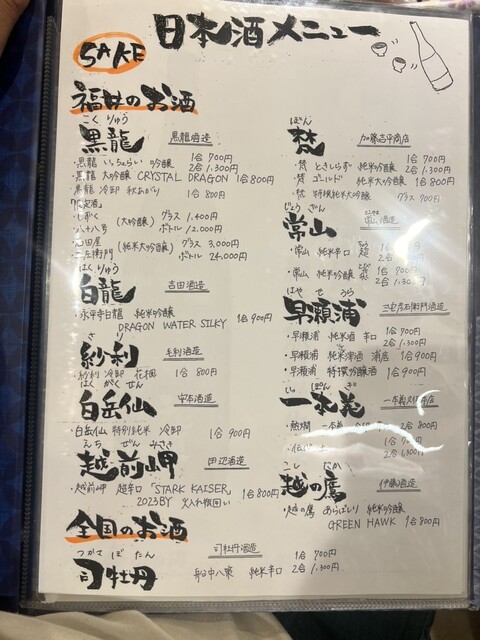 SAKE
日本酒メニュー
福井のお酒
こくりゅう
黒龍
黒龍酒造
・黒龍 いっちょらい 吟醸 1合 700円
2合 1,300円
・黒龍 大吟醸 CRYSTAL DRAGON 1合 800円
黒龍 冷卸 秋あがり 1合 800円
「限定酒」
・しずく (大吟醸) グラス 1,400円
・八十八号 ボトル 12,000円
田屋 (純米大吟醸) グラス 3,000円
左衛門 ボトル 24,000円
はくりゅう
白龍
吉田酒造
・永平寺白龍 純米吟醸
DRAGON WATER SILKY 1合 900円
さり
紗利
毛利酒造
・紗利 冷卸 花梱 1合 800円
はくがくせん
白岳仙
安本酒造
・白岳仙 特別純米 冷卸 1合 900円
えちぜんみさき
越前岬
田辺酒造
・越前岬 超辛口 「STARK KAISER」 1合 800円
2023BY 火入れ
全国のお酒
つかさぼたん
司牡丹
司牡丹酒造
船中八策 純米辛口 1合 700円
2合 1,300円
ぼん
梵
加藤吉平商店
・梵 ときしらず 純米吟醸 1合 700円
2合 1,300円
・梵 ゴールド 純米大吟醸 1合 800円
・梵 特撰純米大吟醸 グラス 900円
じょうざん
常山
常山酒造
・常山 純米辛口 超
・常山 純米吟醸 1合 900円
はやせうら
早瀬浦
三宅彦右衛門酒造
・早瀬浦 純米酒 辛口 1合 700円
2合 1,300円
・早瀬浦 純米酒 浦底 1合 900円
・早瀬浦 特撰吟醸酒 1合 900円
いっぽんぎ
一本義
・熱燗 一本義 2合 800円
・伝心
2合 1,300円
こしのたか
越の鷹
伊藤酒造
・越の鷹 あらばしり 純米吟醸
GREEN HAWK 1合 800円